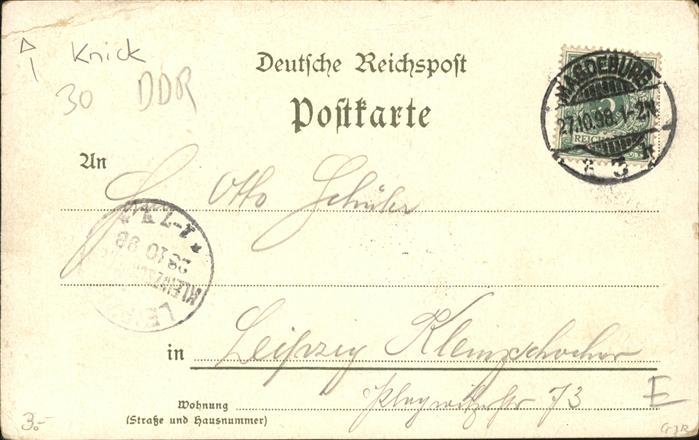 Knick
30 DDR
Deutsche Reichspost
Postkarte
MAGDEBURG
27.10.98. 1-2N
* a 3 *
5
REICHSPOST
An
H Otto Schüler
LEIPZIG
KLEINZSCHOCHER
28 10 98
7-8 V.
in Leipzig Kleinzschocher
73
Wohnung
(Straße und Hausnummer)
3.-
E